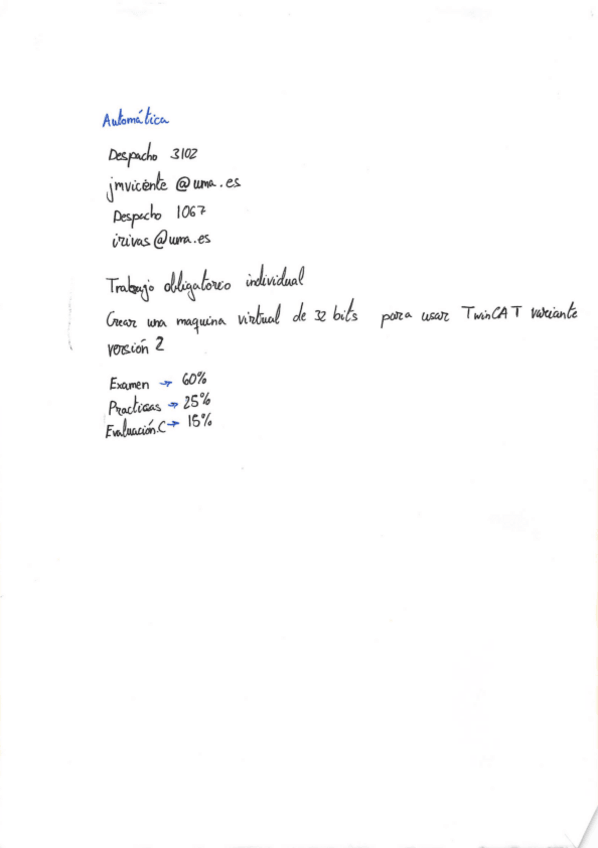 Automática
Despacho 3102
jmvicente@uma.es
Despacho 1067
irivas@uma.es
Trabajo obligatorio individual
Crear una maquina virtual de 32 bits para usar TwinCAT variante
versión 2
Examen → 60%
Practicas → 25%
Evaluación.C → 15%